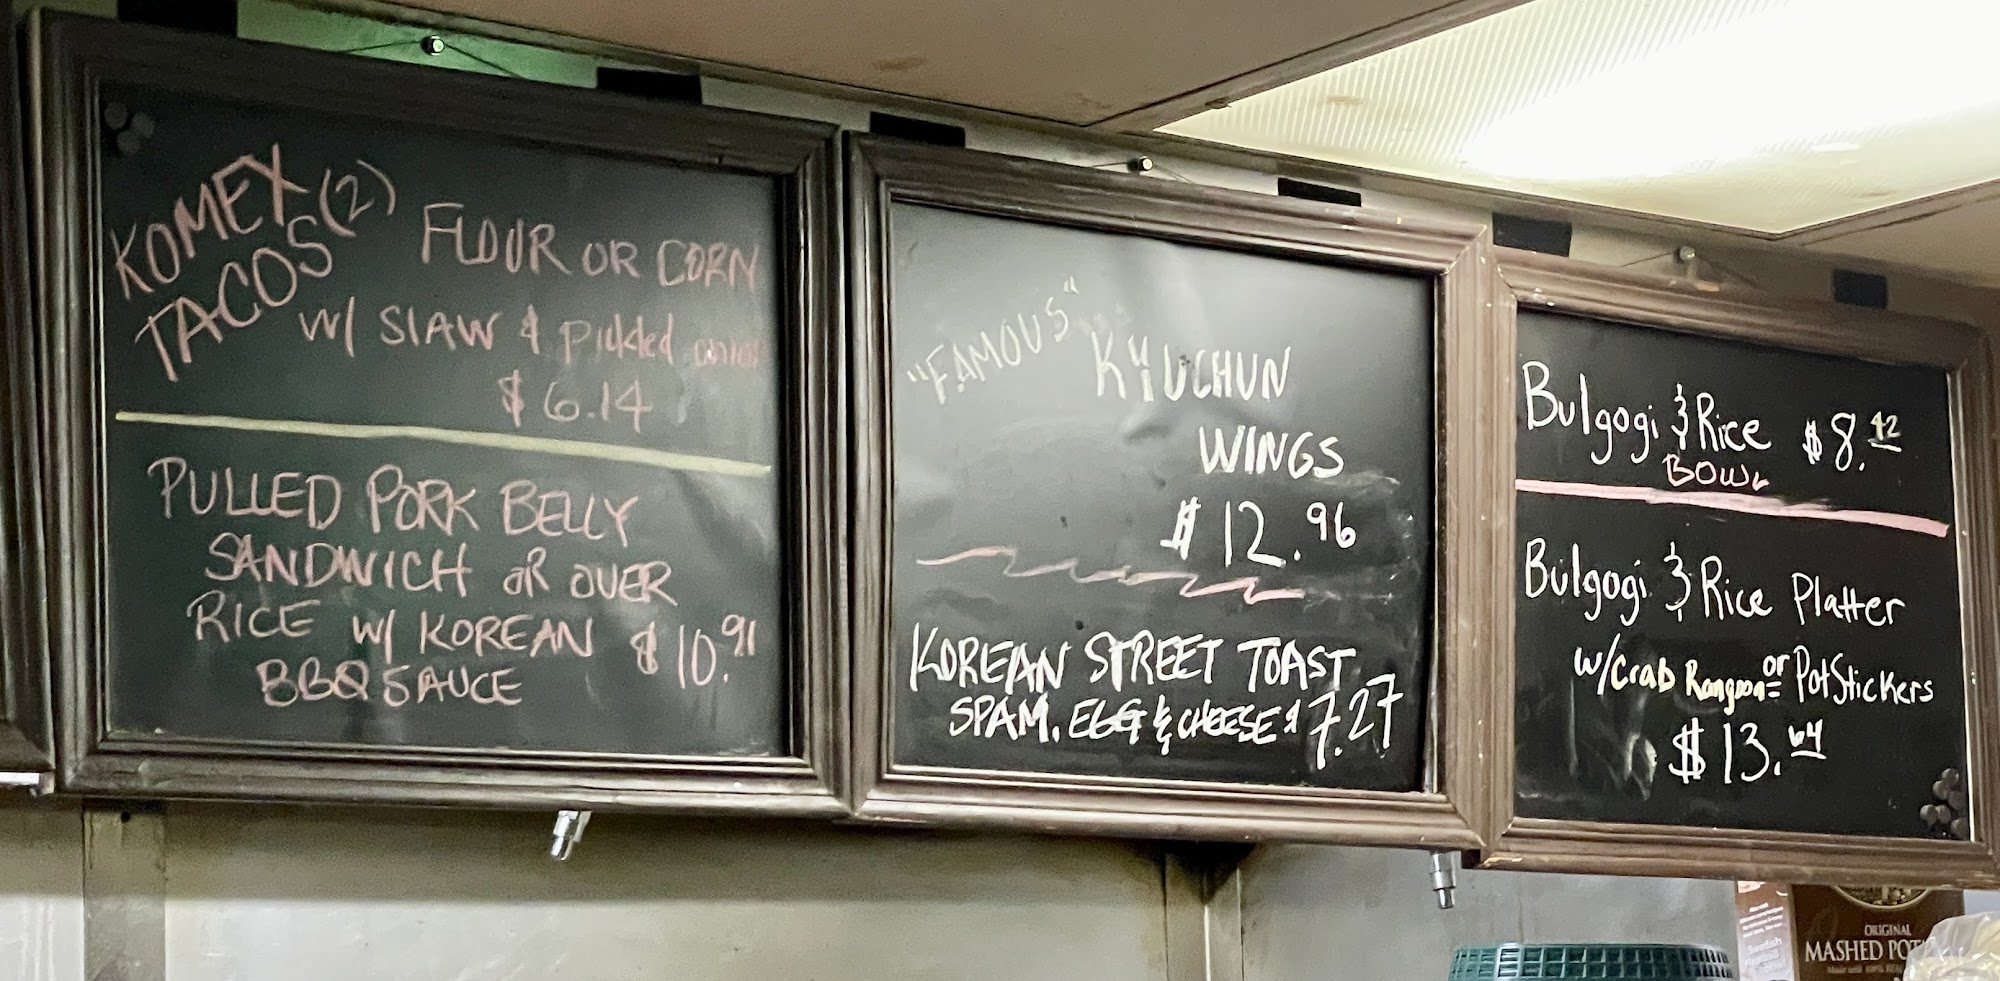 KOMEX
TACOS (2)
FLOUR OR CORN
W/ SLAW & Pickled onion
$6.14
PULLED PORK BELLY
SANDWICH OR OVER
RICE W/ KOREAN $10.91
BBQ SAUCE
"FAMOUS"
KYUCHUN
WINGS
$12.96
KOREAN STREET TOAST
SPAM, EGG & CHEESE $7.27
Bulgogi & Rice $8.42
BOWL
Bulgogi & Rice Platter
w/Crab Rangoon or PotStickers
$13.64
ORIGINAL
MASHED POT